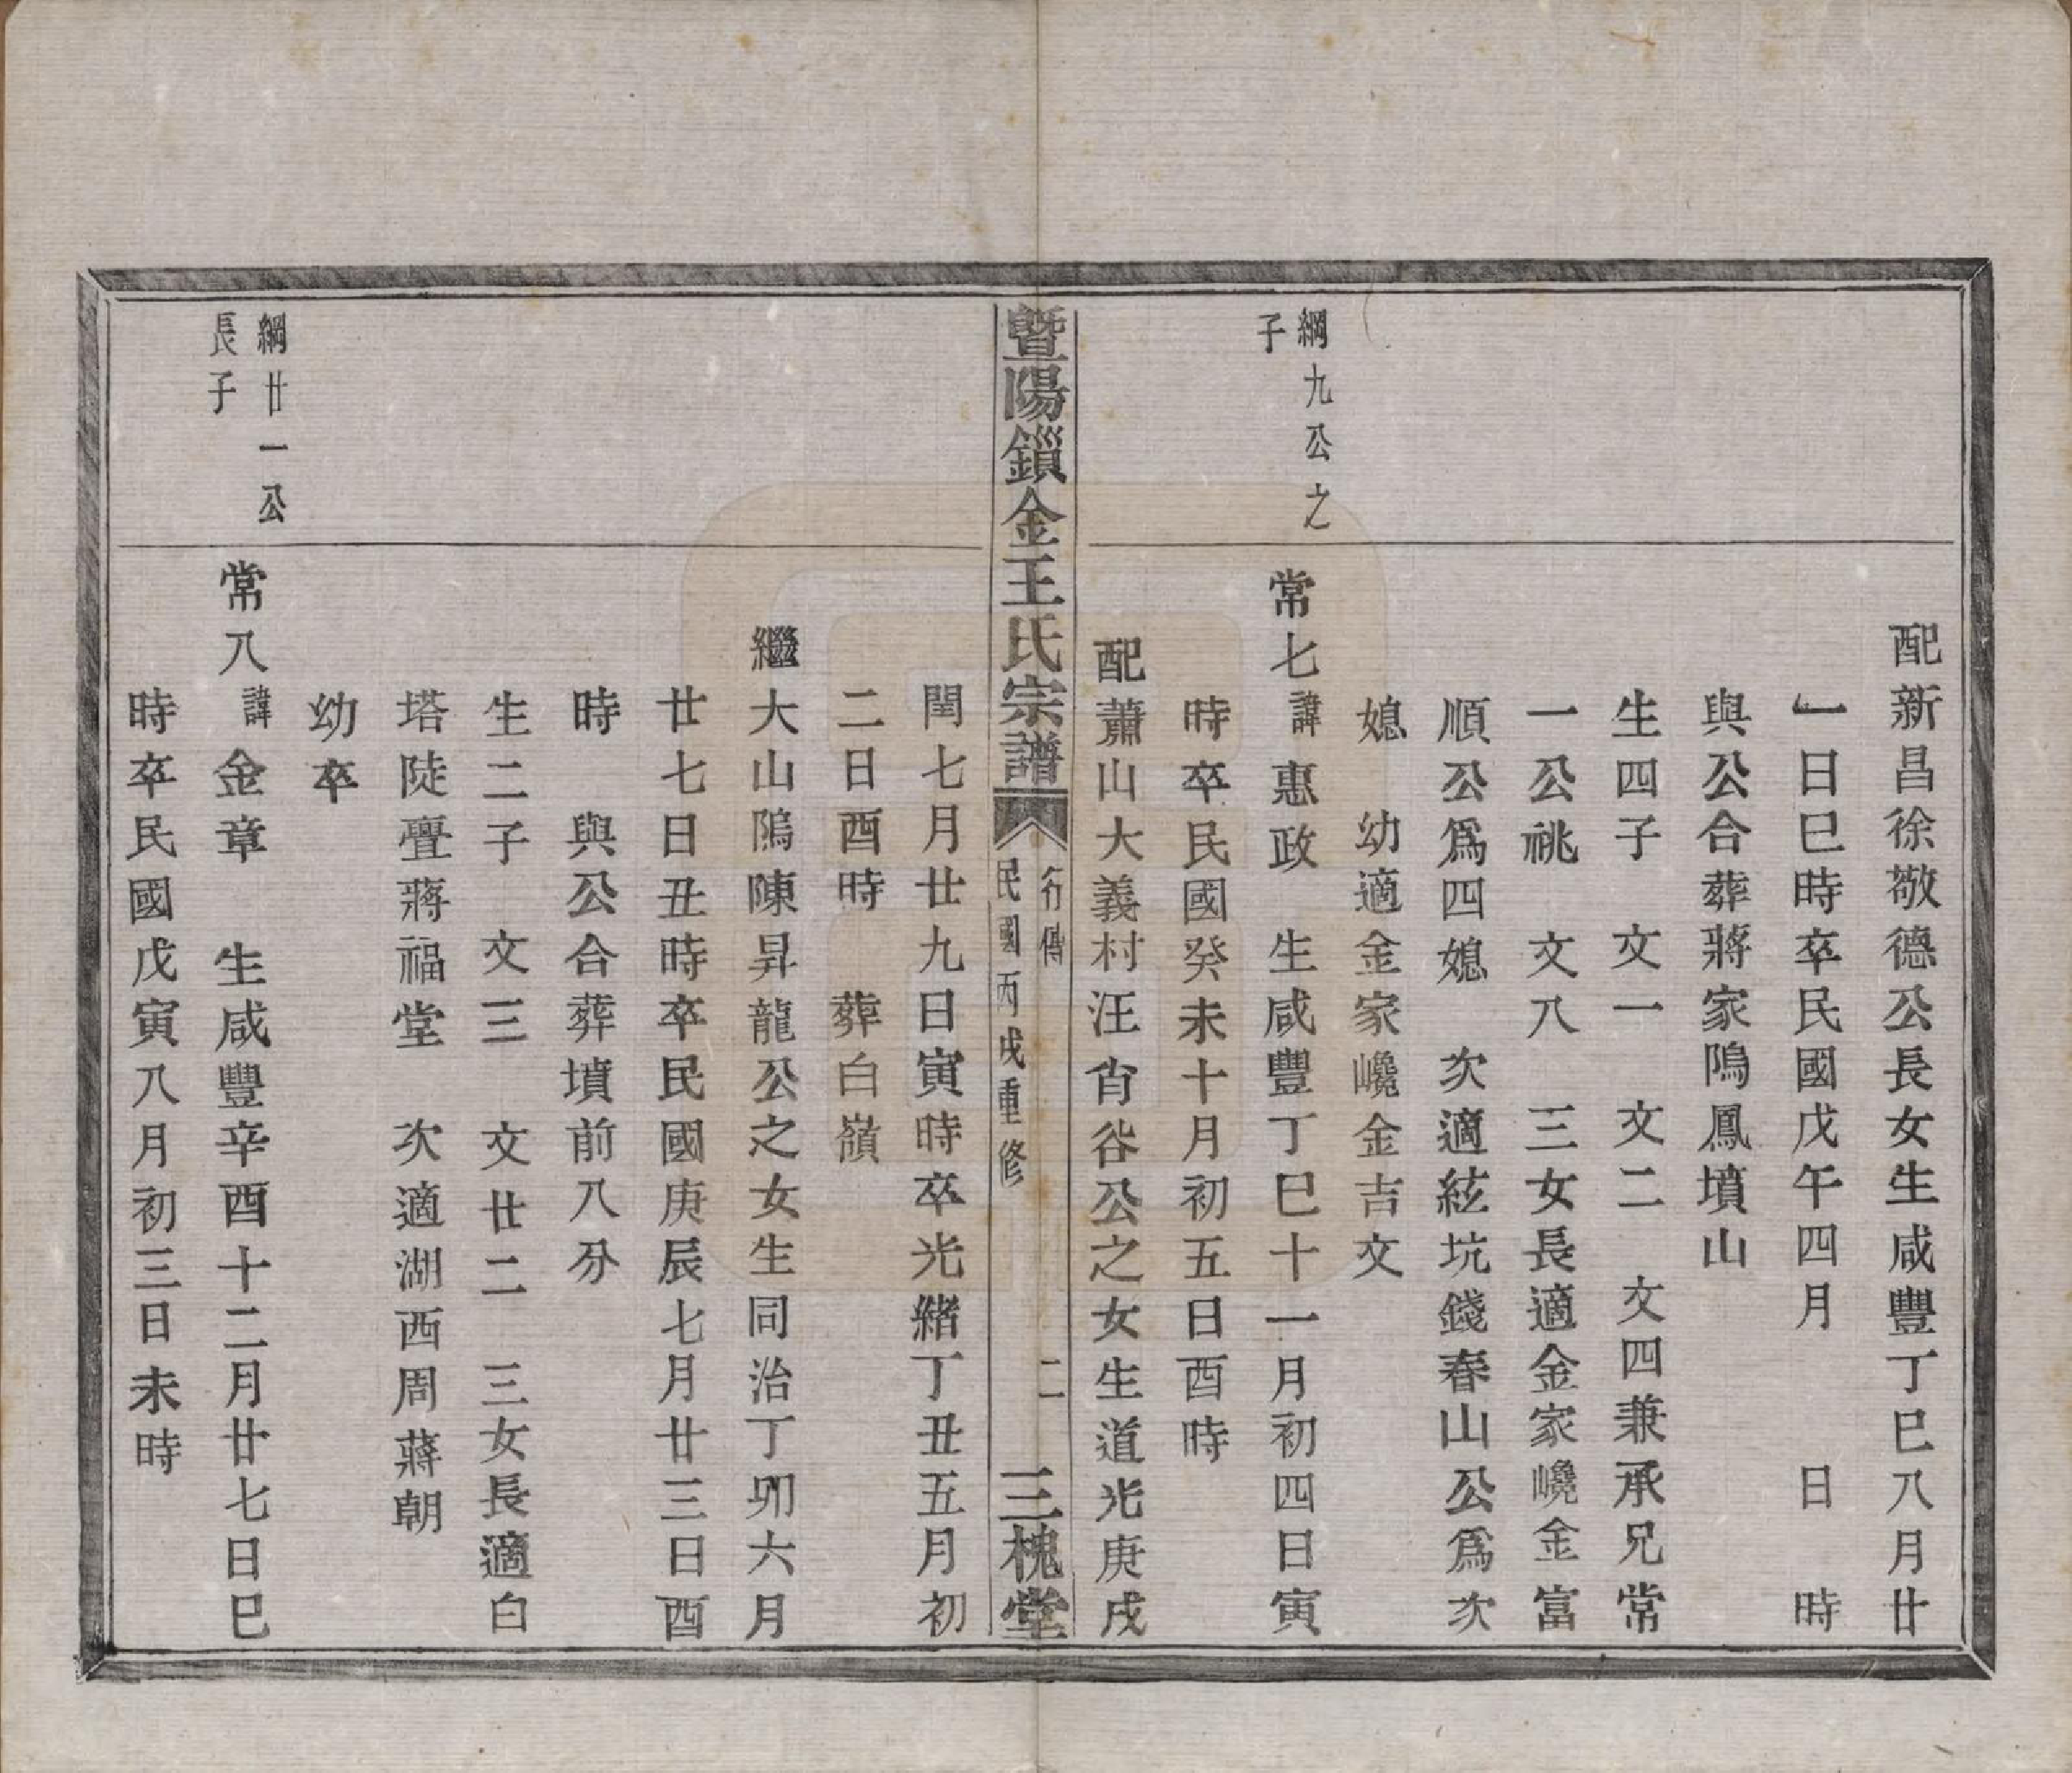 配新昌徐敬德公長女生咸豐丁巳八月廿
一日巳時卒民國戊午四月　日　時
與公合葬蔣家隖鳳墳山
生四子　文一　文二　文四兼承兄常
一公祧　文八　三女長適金家巉金富
順公爲四媳　次適紘坑錢春山公爲次
媳　幼適金家巉金吉文
綱九公之
子
常七諱惠政　生咸豐丁巳十一月初四日寅
時卒民國癸未十月初五日酉時
配蕭山大義村汪肯谷公之女生道光庚戌
暨陽鎻金王氏宗譜
行傳
民國丙戌重修
二
三槐堂
閏七月廿九日寅時卒光緒丁丑五月初
二日酉時　葬白嶺
繼大山隖陳昇龍公之女生同治丁卯六月
廿七日丑時卒民國庚辰七月廿三日酉
時　與公合葬墳前八分
生二子　文三　文廿二　三女長適白
塔陡亹蔣福堂　次適湖西周蔣朝
幼卒
綱廿一公
長子
常八諱金章　生咸豐辛酉十二月廿七日巳
時卒民國戊寅八月初三日未時